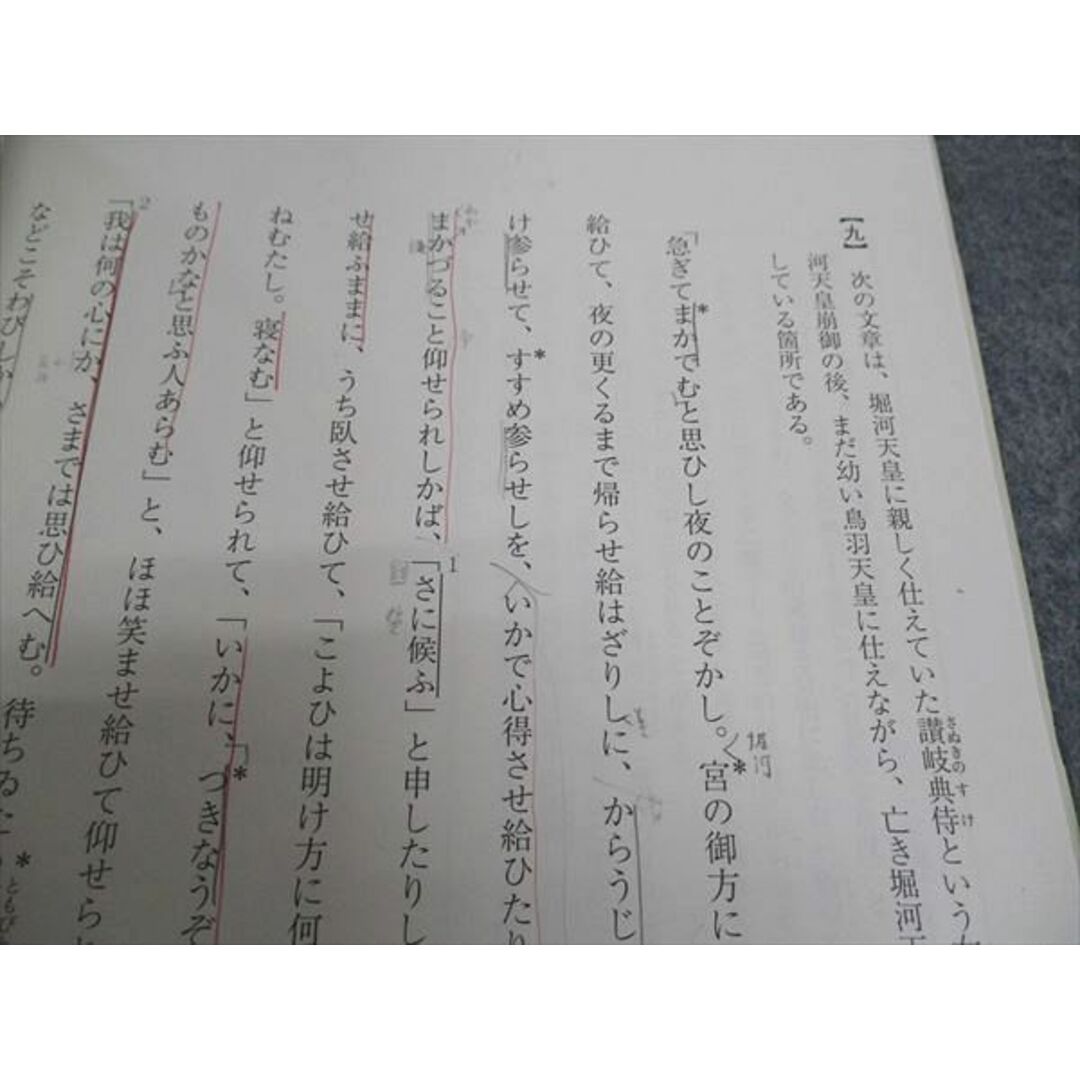 【九】 次の文章は、堀河天皇に親しく仕えていた讃岐典侍という
河天皇崩御の後、まだ幼い鳥羽天皇に仕えながら、亡き堀河
している箇所である。
「急ぎてまかでむ」と思ひし夜のことぞかし。宮の御方に
給ひて、夜の更くるまで帰らせ給はざりしに、からうじ
け参らせて、すすめ参らせしを、いかで心得させ給ひたり
まかづること仰せられしかば、「さに候ふ」と申したりし
せ給ふままに、うち臥させ給ひて、「こよひは明け方に何
ねむたし。寝なむ」と仰せられて、「いかに、『つきなうぞ
ものかな』と思ふ人あらむ」と、ほほ笑ませ給ひて仰せら
「我は何の心にか、さまでは思ひ給へむ。待ちゐた
などこそわびしか
さぬきのすけ
堀河
1
2